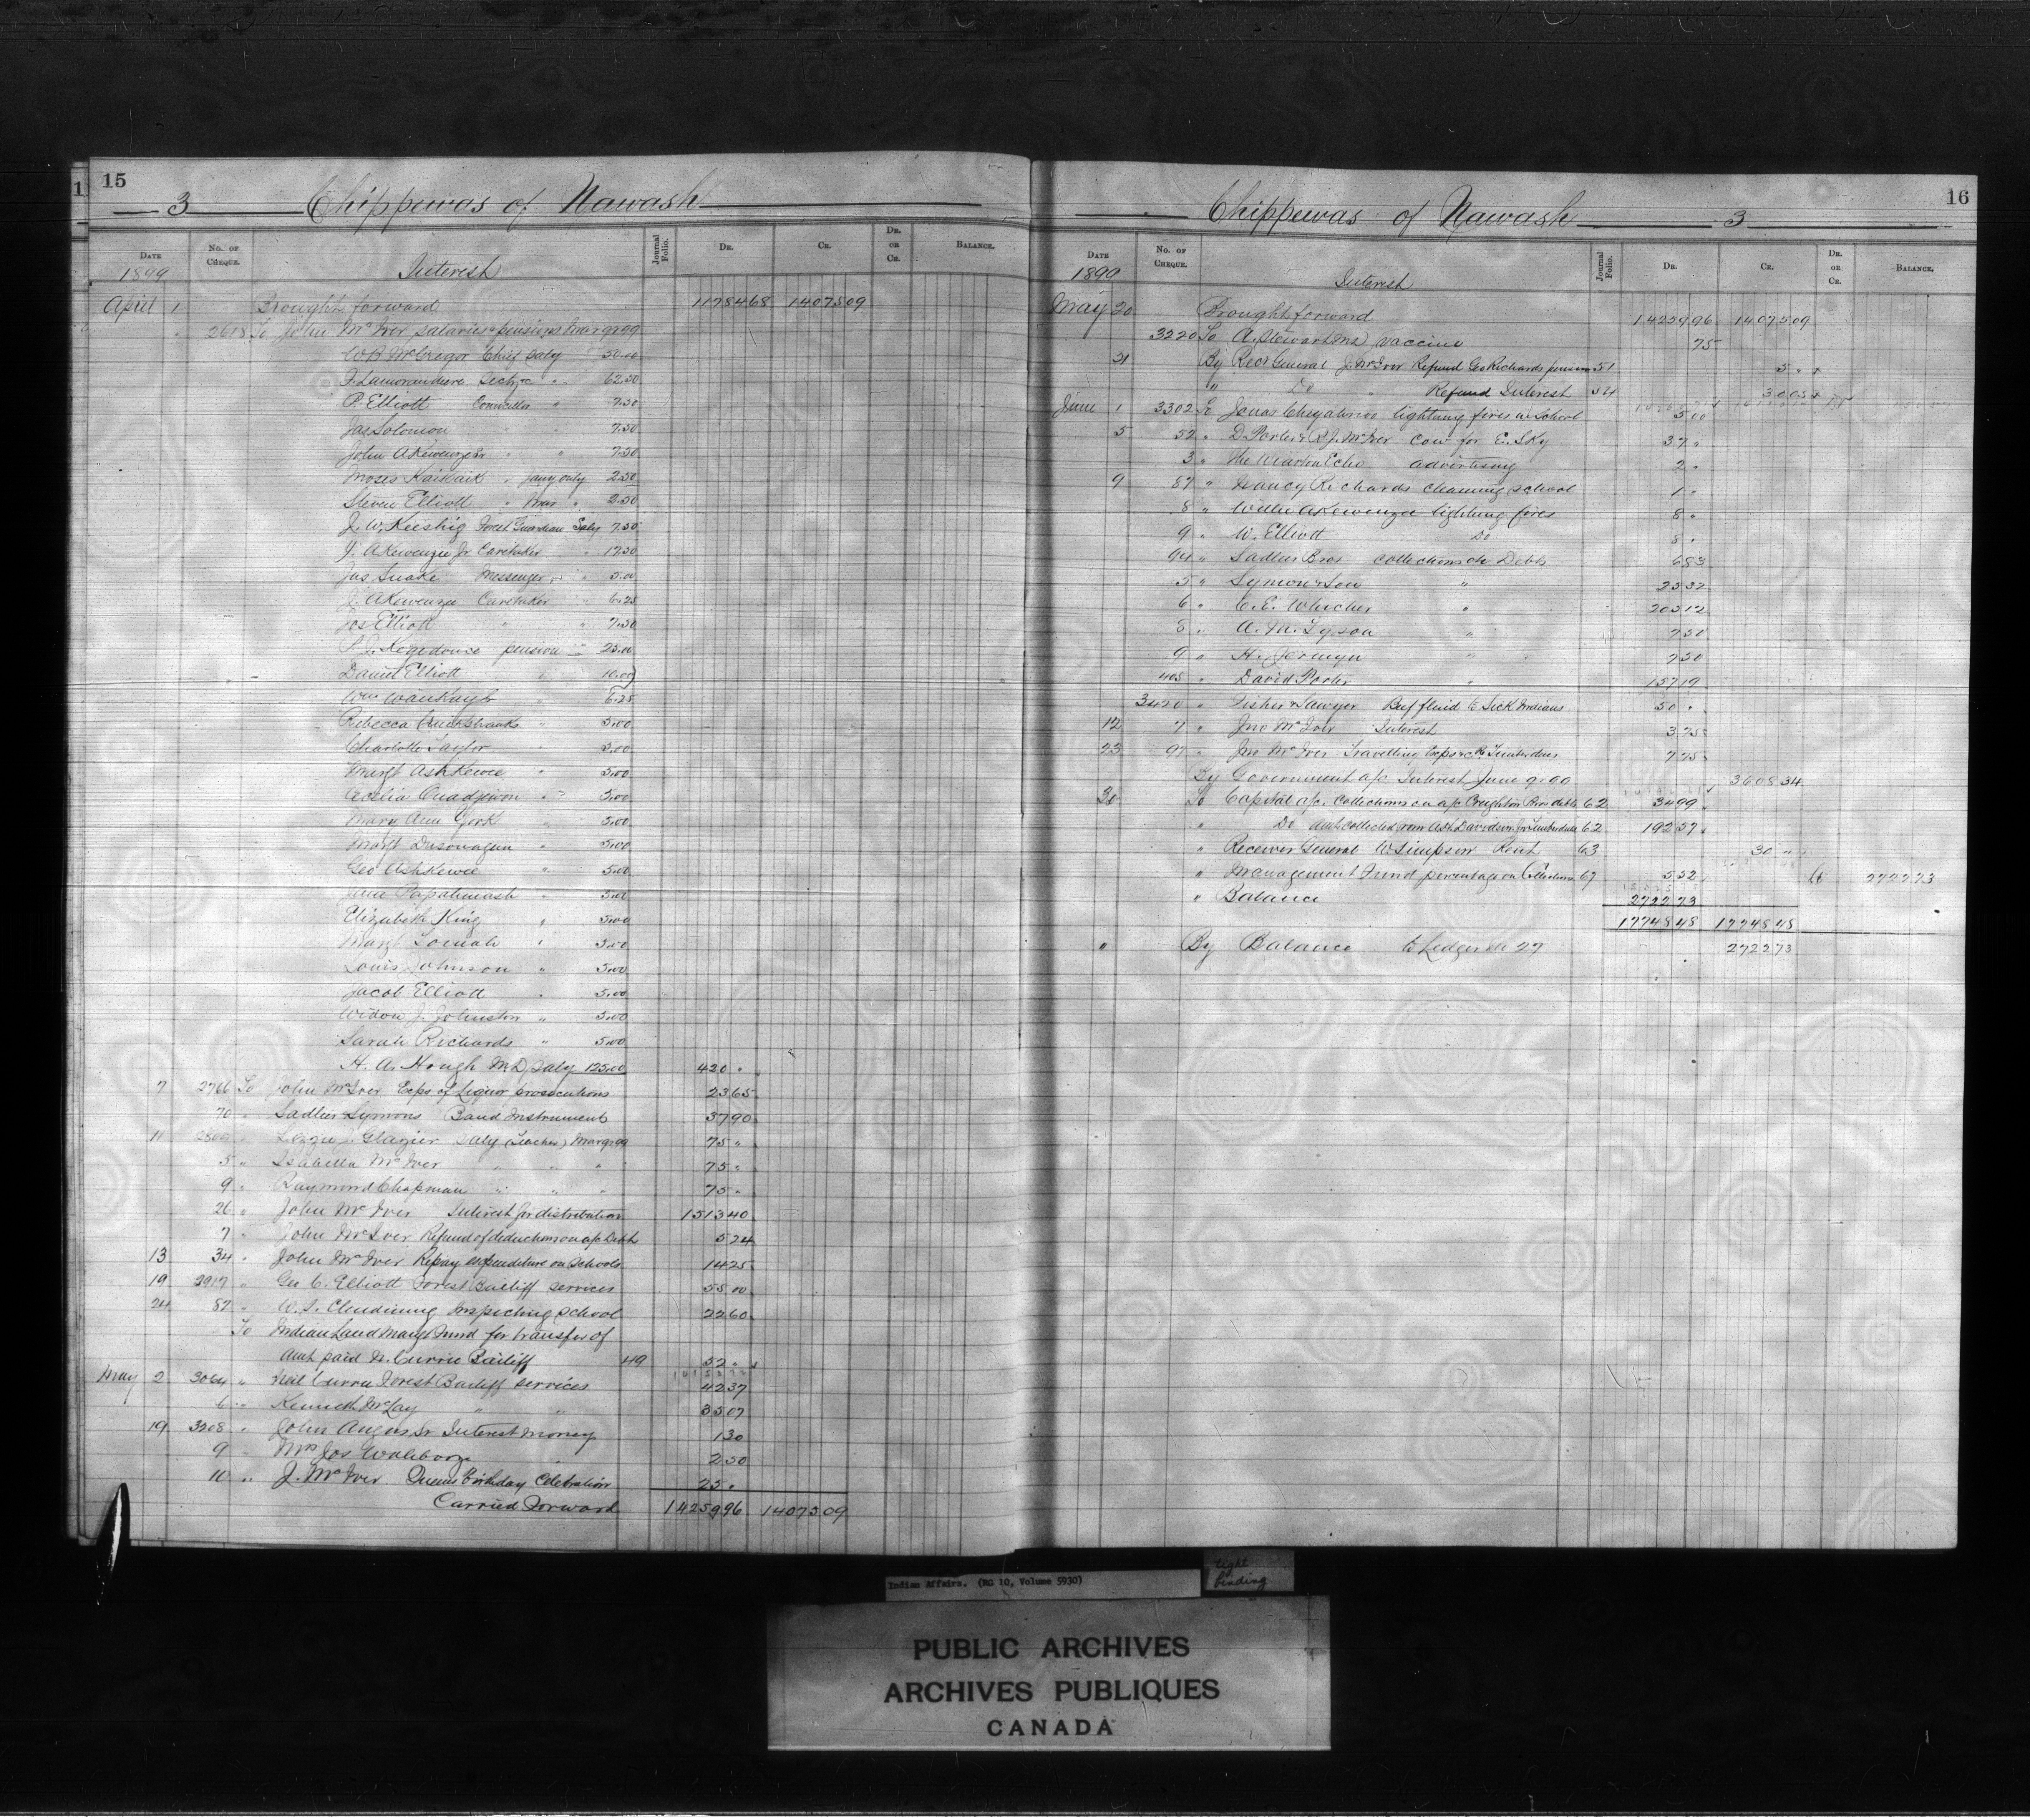 15
3 Chippewas of Nawash
Date No. of Cheque. Journal Folio. Dr. Cr. Dr. or Cr. Balance.
1899 Interest
April 1 Brought forward 11784 68 14075 09
2618 To John McIver salaries & pensions Mar qr 99
W B McGregor Chief Saly 50.00
F. Lamorandiere Secty &c " 62.50
P. Elliott Councillor " 7.50
Jas Solomon " " 7.50
John AKewenzie Sr " " 7.50
Moses Kaikaik " Jany only 2.50
Steven Elliott " Mar " 2.50
J. W. Keeshig Forest Guardian Saly 7.50
J. AKewenzie Jr Caretaker " 17.50
Jas Snake Messenger " 5.00
J. AKewenzie Caretaker " 6.25
Jos Elliott " " 7.50
P. J. Kegedonce pension 25.00
Daniel Elliott " 10.00
Wm Waukay " 6.25
Rebecca Cruickshanks " 5.00
Charlotte Taylor " 5.00
Margt Ashkewe " 5.00
Cecelia Quadjiwon " 5.00
Mary Ann York " 5.00
Margt Dusonagun " 5.00
Geo Ashkewe " 5.00
Jane Papahmosh " 5.00
Elizabeth King " 5.00
Margt Tomah " 5.00
Louis Johnson " 5.00
Jacob Elliott " 5.00
Widow J. Johnston " 5.00
Sarah Richards " 5.00
H. A. Hough M.D. Saly 125.00 420 "
7 2766 To John McIver Exps of Liquor prosecutions 23 65
70 " Sadler Symons Band Instruments 37 90
11 Lizzie J. Glazier Saly (Teacher) Mar qr 99 75 "
5 " Isabella McIver " " " 75 "
9 " Raymond Chapman " " " 75 "
26 " John McIver Interest for distribution 1513 40
7 " John McIver Refund of deductions on a/c Debt 5 24
13 34 " John McIver Repay expenditure on Schools 14 25
19 2917 " Geo C. Elliott Forest Bailiff services 55 00
24 87 " W. S. Clendining Inspecting School 22 60
To Indian Land Mangt Fund for transfer of
Amt paid N. Currie Bailiff 49 52 "
May 2 3064 " Neil Currie Forest Bailiff services 42 37
6 " Kenneth McLay " " 35 07
19 3208 " John Angus Sr Interest Money 1 30
9 " Mrs Jos 2 50
10 " J. McIver Queens Birthday Celebration 25 "
Carried Forward 14259 96 14075 09
16
Chippewas of Nawash 3
Date No. of Cheque. Journal Folio. Dr. Cr. Dr. or Cr. Balance.
1899 Interest
May 20 Brought forward 14259 96 14075 09
3220 To A. Stewart MD Vaccine 75
31 By Recr General J. McIver Refund Geo Richards pension 51 5 "
" Do " Refund Interest 54 30 05
June 1 3302 To Jonas Chegahnoo lighting fires in School 5 00
5 52 " D. Porter & R. J. McIver Cow for E. Sky 37 "
3 " The Wiarton Echo advertising 2 "
9 87 " Nancy Richards cleaning school 1 "
8 " Willie AKewenzie lighting fires 8 "
9 " W. Elliott Do 8 "
94 " Sadler Bros collections on Debts 6 83
5 " Symon & Son " 25 32
6 " C. E. Whicher " 203 12
8 " A. M. Tyson " 7 50
9 " H. Jermyn " 7 50
405 " David Porter " 157 19
3420 " Fisher & Sawyer Beef fluid to Sick Indians 50 "
12 7 " Jno McIver Interest 3 75
23 97 " Jno McIver Travelling Exps &c Re Timber dues 7 75
By Government a/c Interest June qr 00 3608 34
30 To Capital a/c Collections on a/c Creighton Bros debts 62 34 99
" Do Amt collected from Ash Davidson for Timber dues 62 192 57
" Receiver General W Simpson Rent 63 30 "
" Management Fund percentage on Collections 67 5 52 Cr 2722 73
" Balance 2722 73
17748 48 17748 48
" By Balance to Ledger No 27 2722 73
Indian Affairs. (RG 10, Volume 5930)
tight binding
PUBLIC ARCHIVES
ARCHIVES PUBLIQUES
CANADA